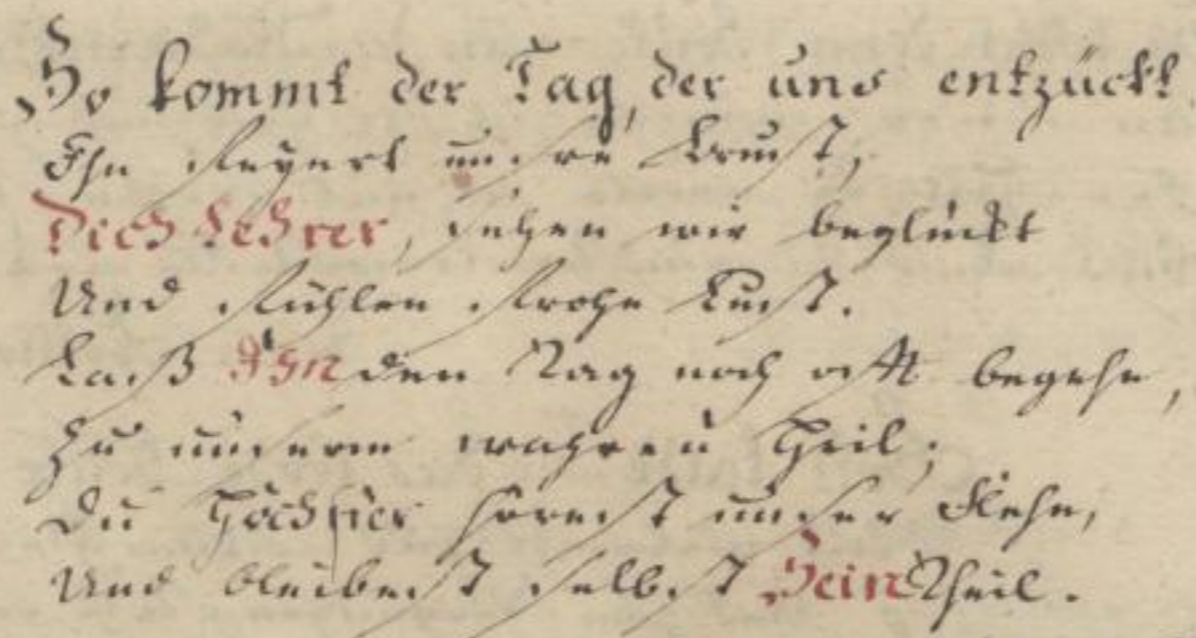 So kommt der Tag, der uns entzückt
Ihn feyert unsre Brust,
Dich Lehrer, sehen wir beglückt
Und fühlen frohe Lust.
Laß Ihn den Tag noch oft begehn,
Zu unserm wahren Heil;
Du Höchster hörest unser Flehn,
Und bleibest selbst Sein Theil.